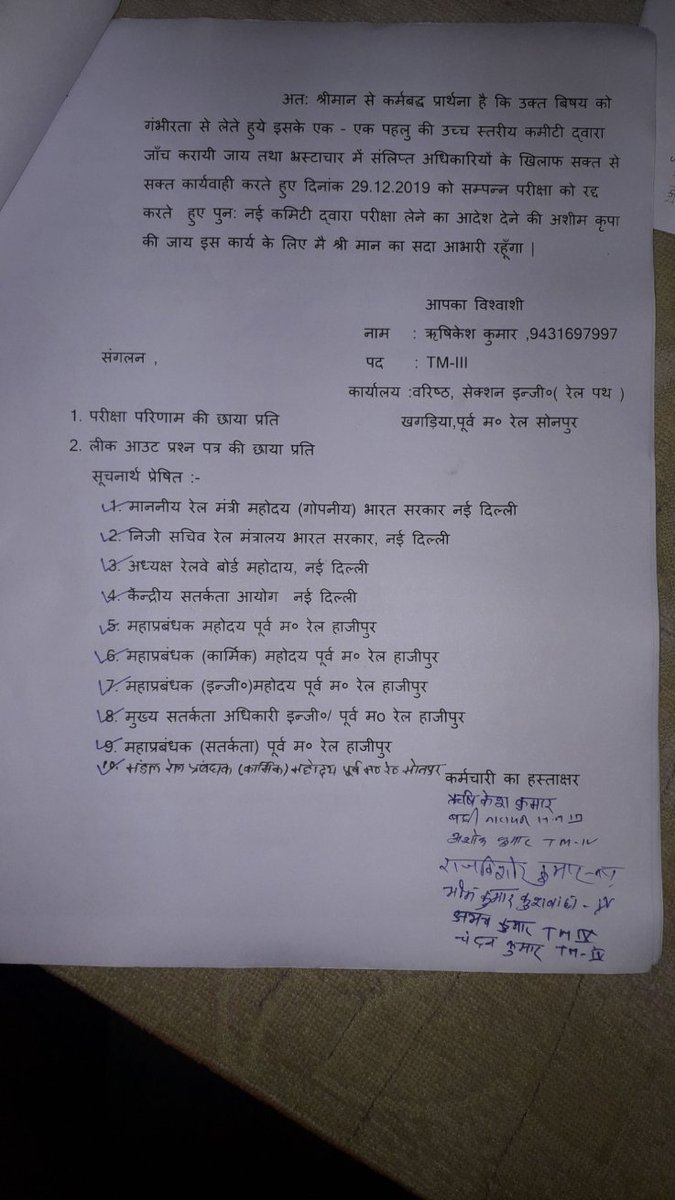 अत: श्रीमान से कर्मबद्ध प्रार्थना है कि उक्त बिषय को
गंभीरता से लेते हुये इसके एक - एक पहलु की उच्च स्तरीय कमीटी द्वारा
जाँच करायी जाय तथा भ्रस्टाचार में संलिप्त अधिकारियों के खिलाफ सक्त से
सक्त कार्यवाही करते हुए दिनांक 29.12.2019 को सम्पन्न परीक्षा को रद्द
करते हुए पुन: नई कमिटी द्वारा परीक्षा लेने का आदेश देने की अशीम कृपा
की जाय इस कार्य के लिए मै श्री मान का सदा आभारी रहूँगा |
आपका विश्वाशी
नाम : ऋषिकेश कुमार ,9431697997
संगलन ,
पद : TM-III
कार्यालय :वरिष्ठ, सेक्शन इन्जी०( रेल पथ )
1. परीक्षा परिणाम की छाया प्रति
खगड़िया,पूर्व म० रेल सोनपुर
2. लीक आउट प्रश्न पत्र की छाया प्रति
सूचनार्थ प्रेषित :-
1. माननीय रेल मंत्री महोदय (गोपनीय) भारत सरकार नई दिल्ली
2. निजी सचिव रेल मंत्रालय भारत सरकार, नई दिल्ली
3. अध्यक्ष रेलवे बोर्ड महोदाय, नई दिल्ली
4. केंन्द्रीय सतर्कता आयोग नई दिल्ली
5. महाप्रबंधक महोदय पूर्व म० रेल हाजीपुर
6. महाप्रबंधक (कार्मिक) महोदय पूर्व म० रेल हाजीपुर
7. महाप्रबंधक (इन्जी०)महोदय पूर्व म० रेल हाजीपुर
8. मुख्य सतर्कता अधिकारी इन्जी०/ पूर्व म0 रेल हाजीपुर
9. महाप्रबंधक (सतर्कता) पूर्व म० रेल हाजीपुर
10. मंडल रेल प्रबंधक (कार्मिक) महोदय पूर्व म० रेल सोनपुर
कर्मचारी का हस्ताक्षर
ऋषि केश कुमार
अशोक कुमार TM-IV
कुमार
भीम कुमार कुशवाहा - IV
कुमार TM IV
चंदन कुमार TM-IV